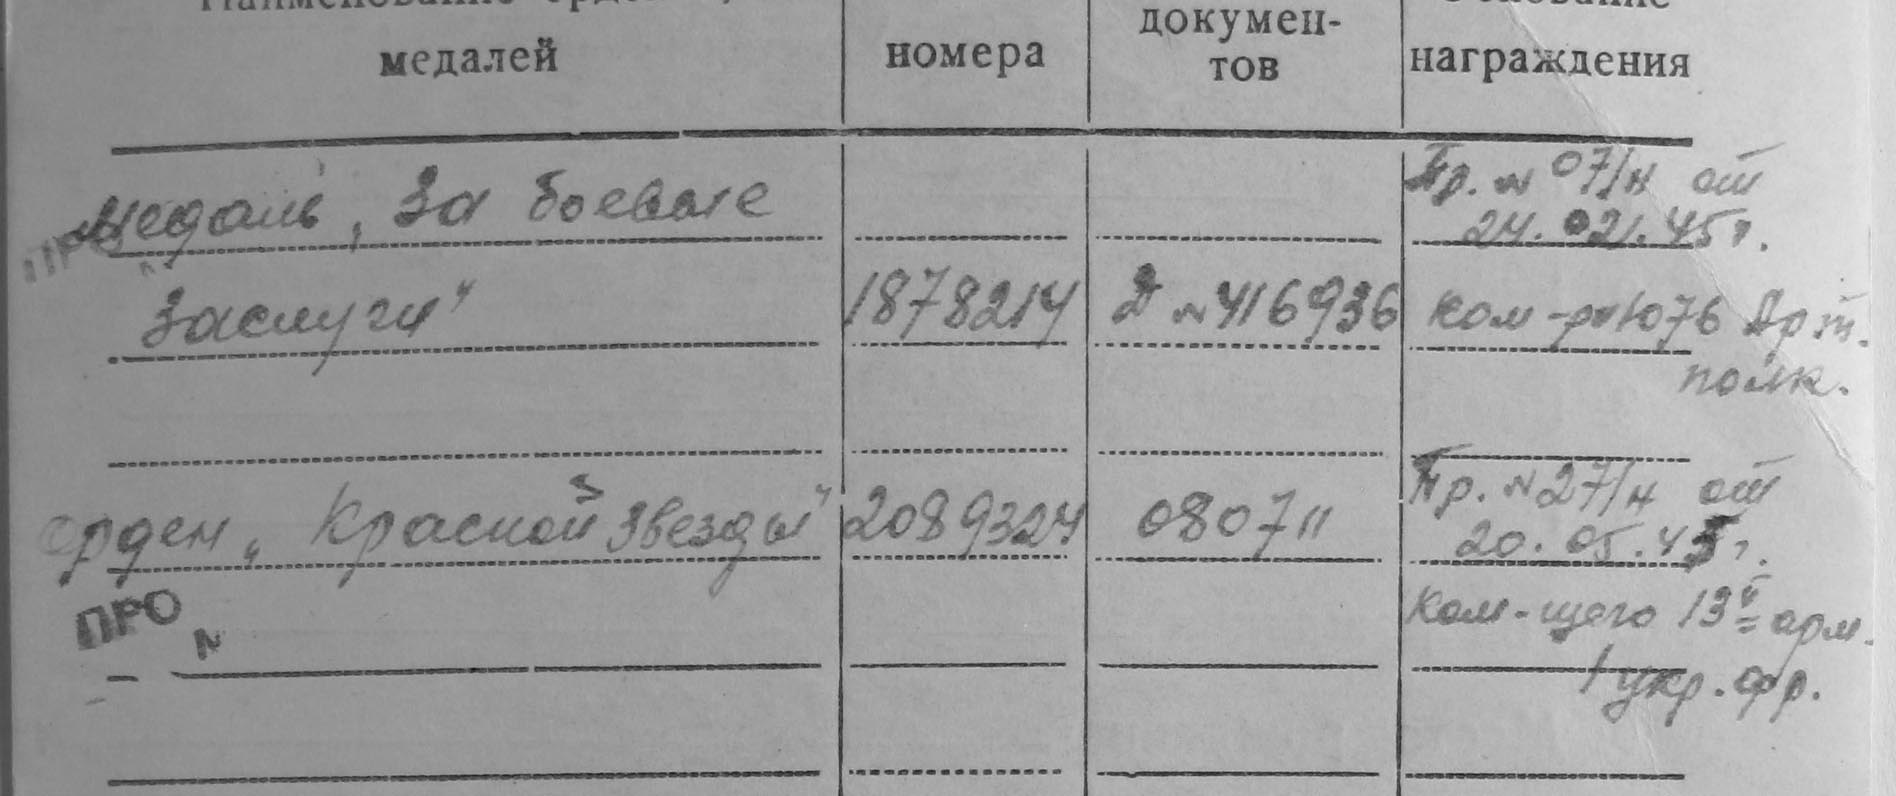 Наименование
медалей
номера
докумен-
тов
Основание
награждения
Медаль „За боевые
заслуги"
1878214
Д №416936
Пр. № 07/н от
24.02.45г.
ком-ра 1076 Арт.
полк.
орден „Красной Звезды"
2089324
Пр. №27/н от
20.05.45г.
Ком-щего 13й арм.
1 укр. фр.
ПРО
N